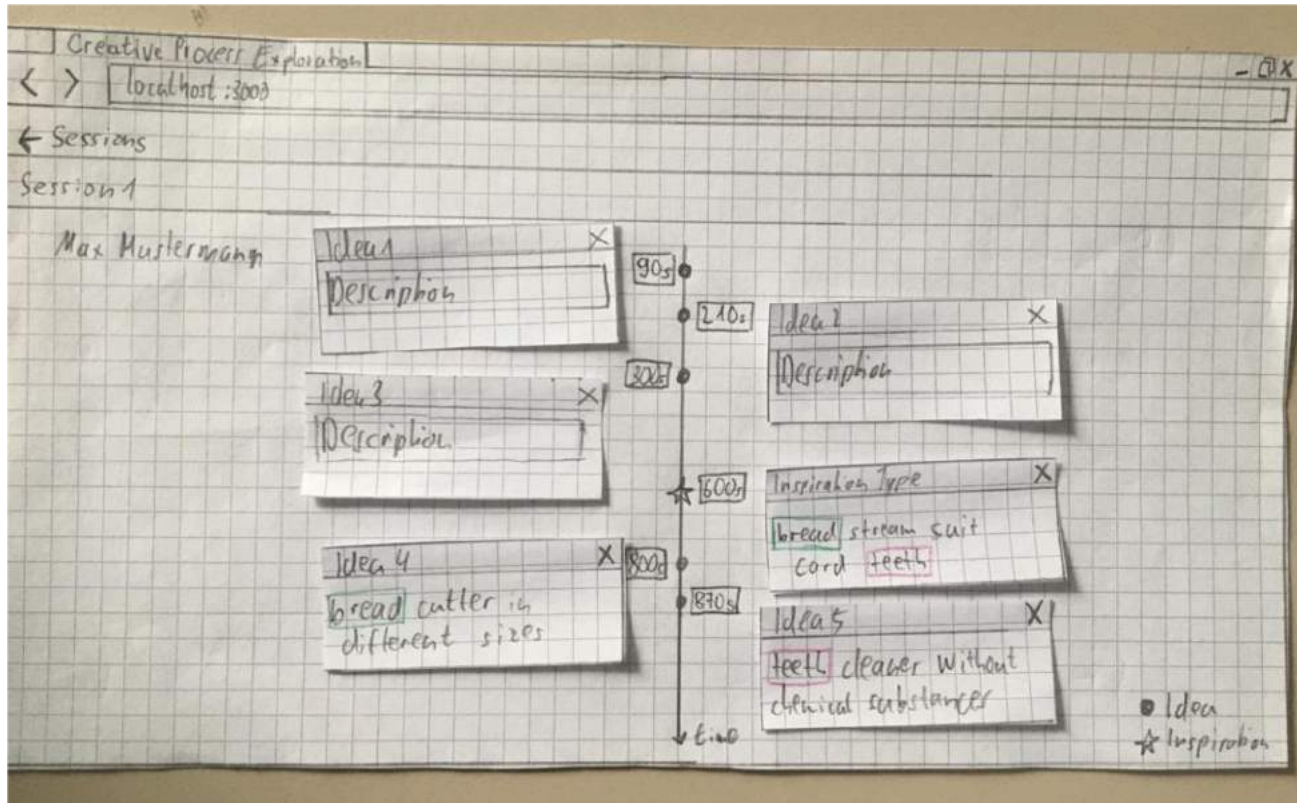 Creative Process Exploration
localhost:3003
← Sessions
Session 1
Max Mustermann
Idea 1 X
Description
90s
210s
Idea 2 X
Description
300s
Idea 3 X
Description
600s
Inspiration Type X
bread stream suit
card teeth
Idea 4 X
bread cutter in
different sizes
800s
870s
Idea 5 X
teeth cleaner without
chemical substances
time
Idea
Inspiration